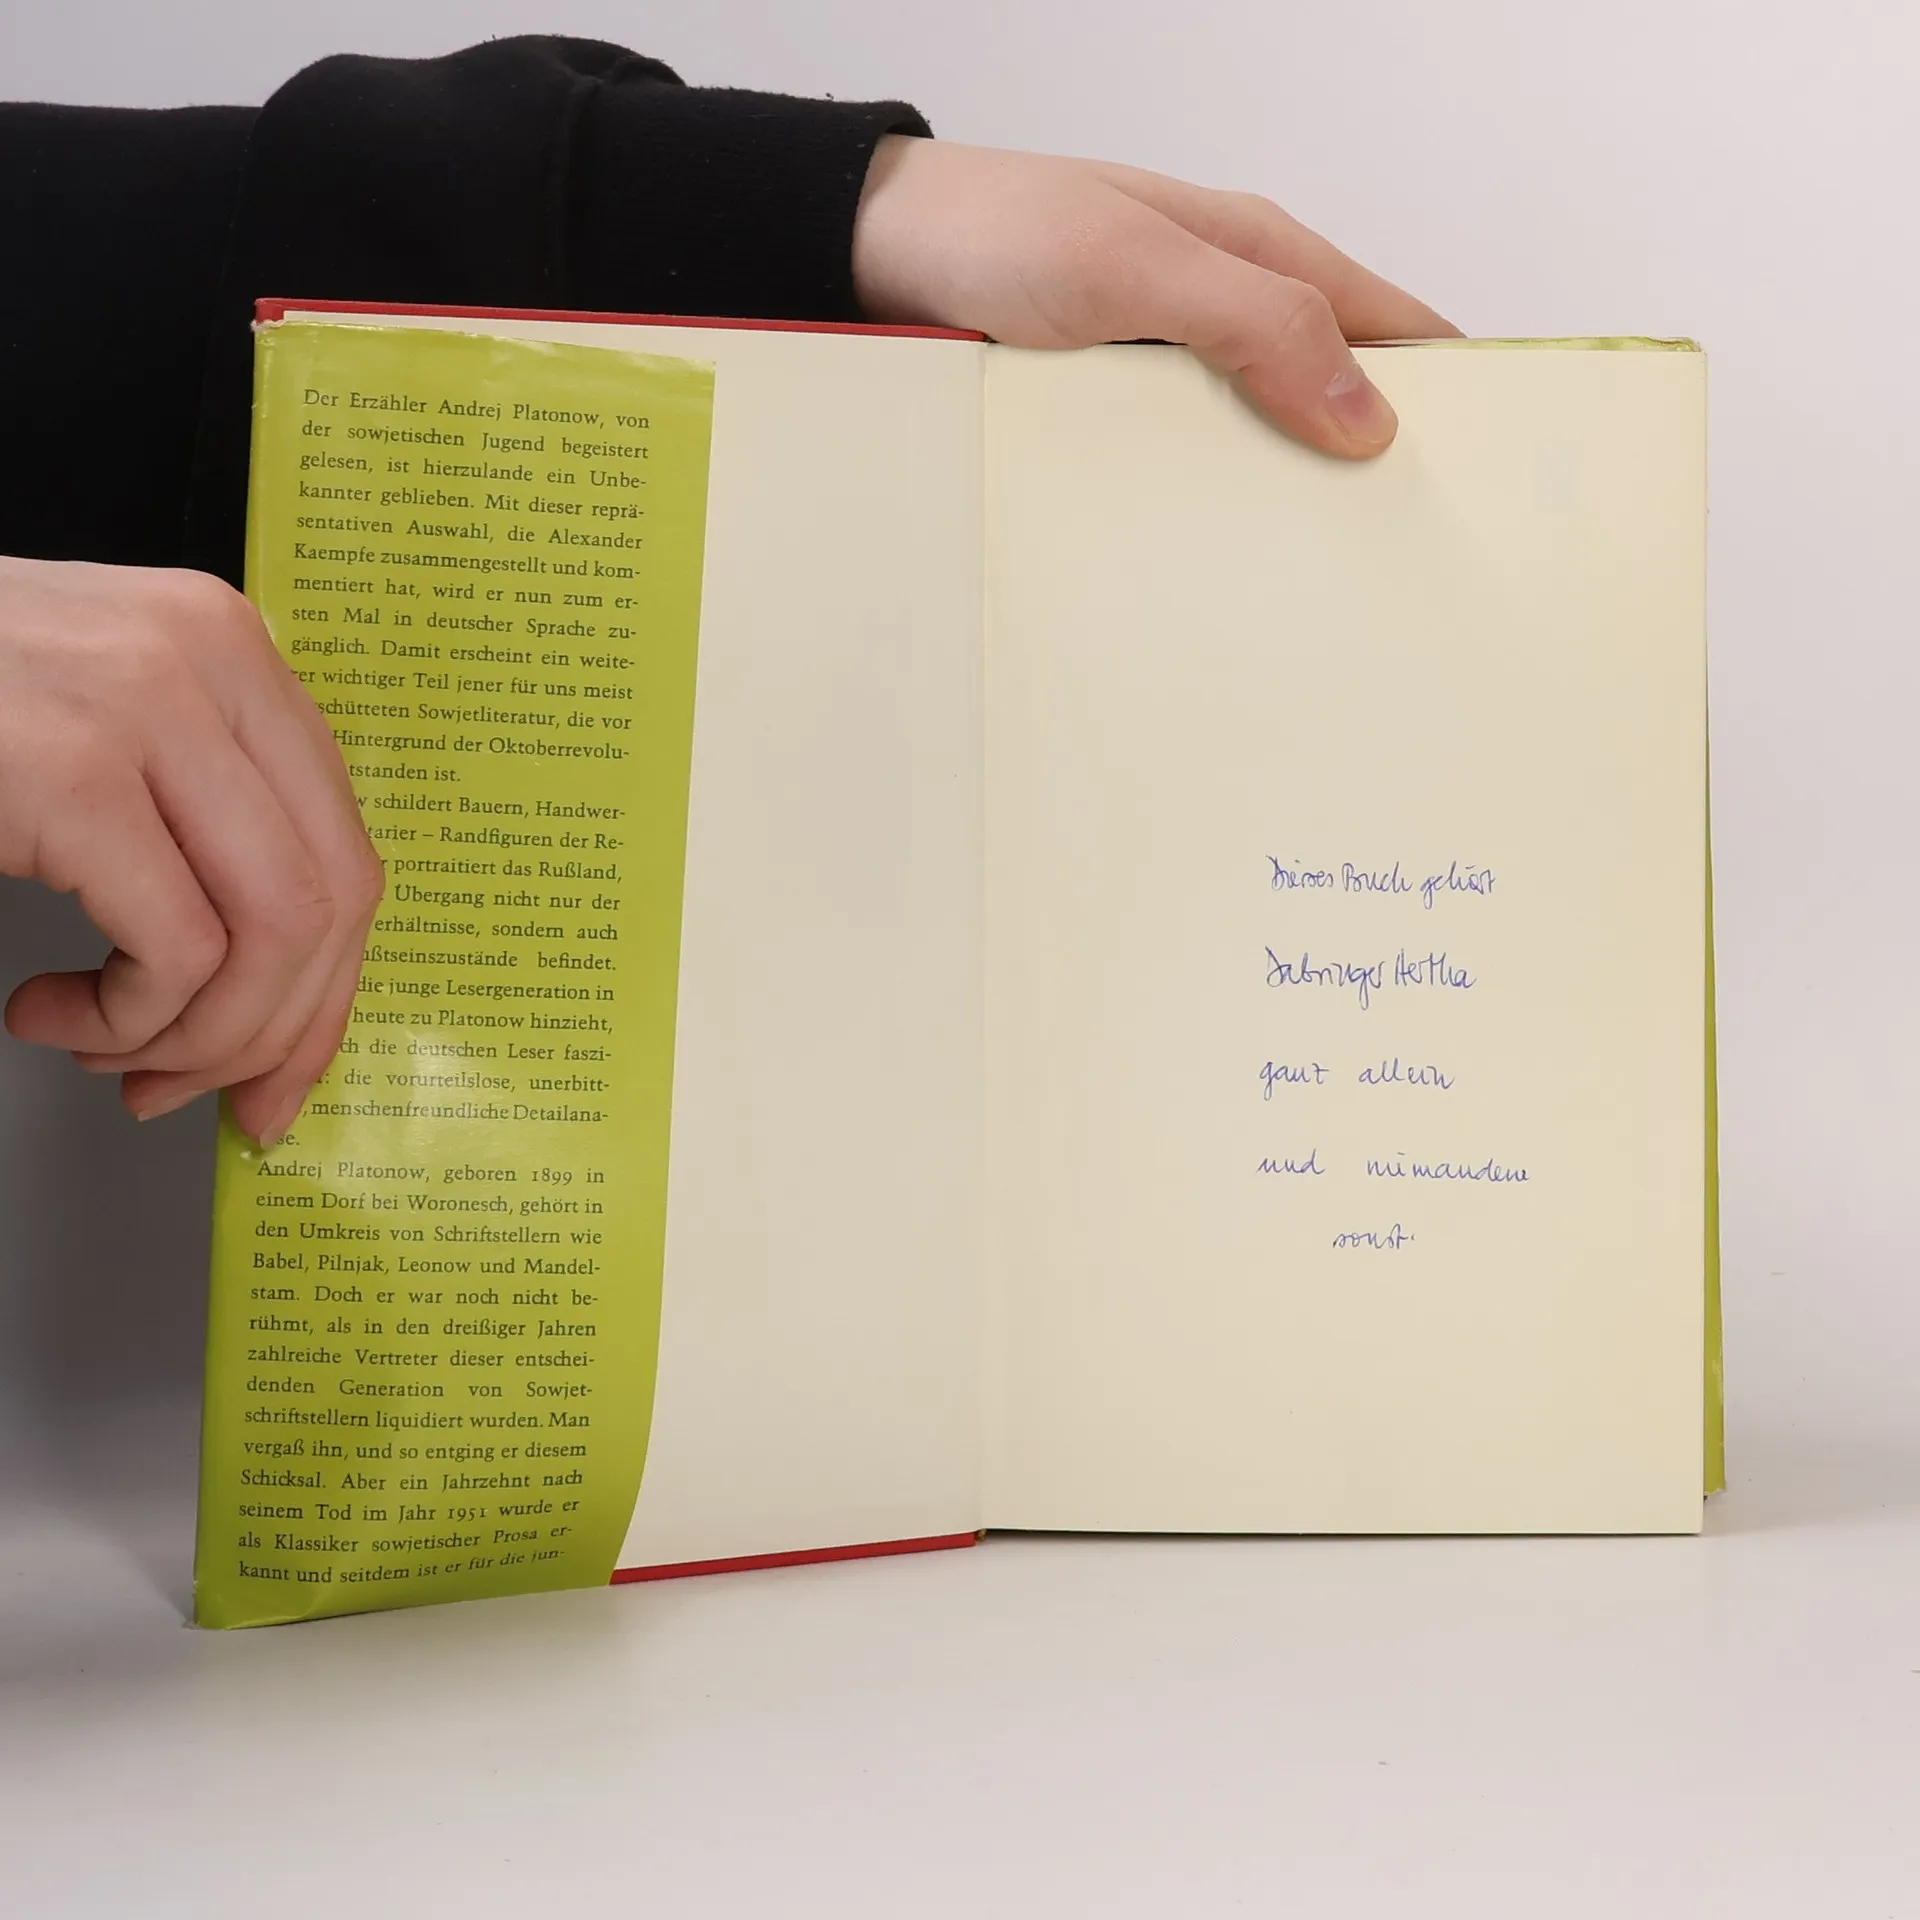 Der Erzähler Andrej Platonow, von
der sowjetischen Jugend begeistert
gelesen, ist hierzulande ein Unbe-
kannter geblieben. Mit dieser reprä-
sentativen Auswahl, die Alexander
Kaempfe zusammengestellt und kom-
mentiert hat, wird er nun zum er-
sten Mal in deutscher Sprache zu-
gänglich. Damit erscheint ein weite-
rer wichtiger Teil jener für uns meist
schütteten Sowjetliteratur, die vor
Hintergrund der Oktoberrevolu-
tstanden ist.
w schildert Bauern, Handwer-
tarier – Randfiguren der Re-
r portraitiert das Rußland,
Übergang nicht nur der
erhältnisse, sondern auch
ußtseinszustände befindet.
die junge Lesergeneration in
heute zu Platonow hinzieht,
ch die deutschen Leser faszi-
: die vorurteilslose, unerbitt-
, menschenfreundliche Detailana-
se.
Andrej Platonow, geboren 1899 in
einem Dorf bei Woronesch, gehört in
den Umkreis von Schriftstellern wie
Babel, Pilnjak, Leonow und Mandel-
stam. Doch er war noch nicht be-
rühmt, als in den dreißiger Jahren
zahlreiche Vertreter dieser entschei-
denden Generation von Sowjet-
schriftstellern liquidiert wurden. Man
vergaß ihn, und so entging er diesem
Schicksal. Aber ein Jahrzehnt nach
seinem Tod im Jahr 1951 wurde er
als Klassiker sowjetischer Prosa er-
kannt und seitdem ist er für die jun-
Dieses Buch gehört
Dabringer Hertha
ganz allein
und niemandem
sonst.